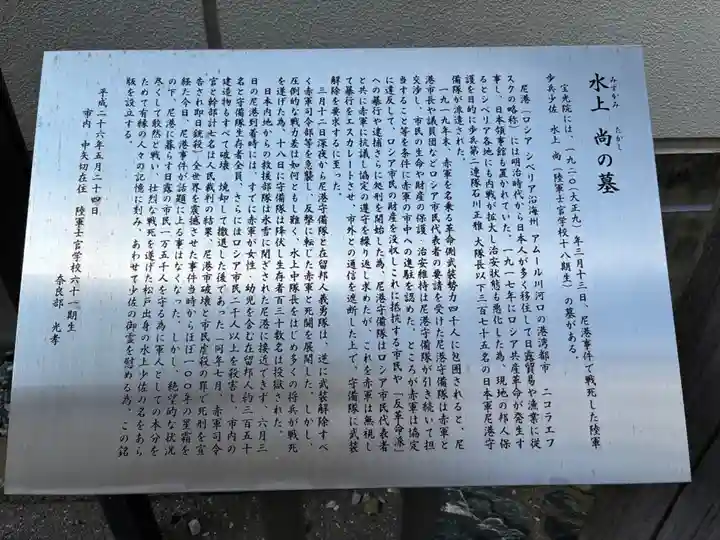 水上 尚の墓
みずかみ たかし
宝光院には、一九二〇(大正九)年三月十三日、尼港事件で戦死した陸軍
歩兵少佐 水上 尚(陸軍士官学校十八期生)の墓がある。
尼港(ロシア シベリア沿海州 アムール川河口の港湾都市 ニコラエフ
スクの略称)には明治時代から日本人が多く移住して日露貿易や漁業に従
事し、日本領事館も置かれていた。一九一七年にロシア共産革命が発生す
るとシベリア各地にも内戦が拡大し治安状態も悪化した為、現地の邦人保
護を目的に歩兵第二連隊石川正雅 大隊長以下三百七十五名の日本軍尼港守
備隊が派遣された。
一九一九年末、赤軍を名乗る革命側武装勢力四千人に包囲されると、尼
港市長や議員団などロシア市民代表者の要請を受けた尼港守備隊は赤軍と
交渉し、市民の生命や財産の保護・治安維持は尼港守備隊が引き続いて担
当すること等を条件に赤軍の市中への進駐を認めた。ところが赤軍は協定
に違反してロシア市民の財産を没収しこれに抵抗する市民や「反革命派」
への暴行や逮捕さらに処刑を開始した為、尼港守備隊はロシア市民代表者
と共に赤軍に抗議し協定の遵守を繰り返し求めたが、これを赤軍は無視し
て暴行をエスカレートさせ、市外との通信を遮断した上で、守備隊に武装
解除を要求するに至った。
三月十二日深夜から尼港守備隊と在留邦人義勇隊は、逆に武装解除すべ
く赤軍司令部等を急襲し、反撃に転じた赤軍と死闘を展開した。しかし、
圧倒的な戦力差は如何ともし難く、水上中隊長をはじめ多くの将兵が戦死
を遂げた為、十八日に守備隊は降伏し生存者百三十数名は投獄された。
日本内地からの救援部隊は氷雪に閉ざされた尼港に接近できず、六月三
日の尼港到着時には、すでに赤軍が女性・幼児を含む在留邦人約三百五十
名と守備隊生存者全員、さらにはロシア市民二千人以上を殺害し、市内の
建造物もすべて破壊・焼却して撤退した後であった(同年七月、赤軍司令
官と幹部計七名は人民裁判の結果、尼港市破壊と市民虐殺の罪で死刑を宣
告され即日銃殺)。全世界を震撼させた事件当時からほぼ一〇〇年の星霜を
経た今日、尼港事件が話題に上る事はなくなった。しかし、絶望的な状況
の下、尼港に暮らす日露の市民一万五千人を守る為に軍人としての本分を
尽くして毅然と戦い、壮烈な戦死を遂げた松戸出身の水上少佐の名をあら
ためて有縁の人々の記憶に刻み、あわせて少佐の御霊を慰める為、この銘
版を設立する。
平成二十六年五月二十四日
市内 中矢切在住 陸軍士官学校六十一期生
奈良部 光孝